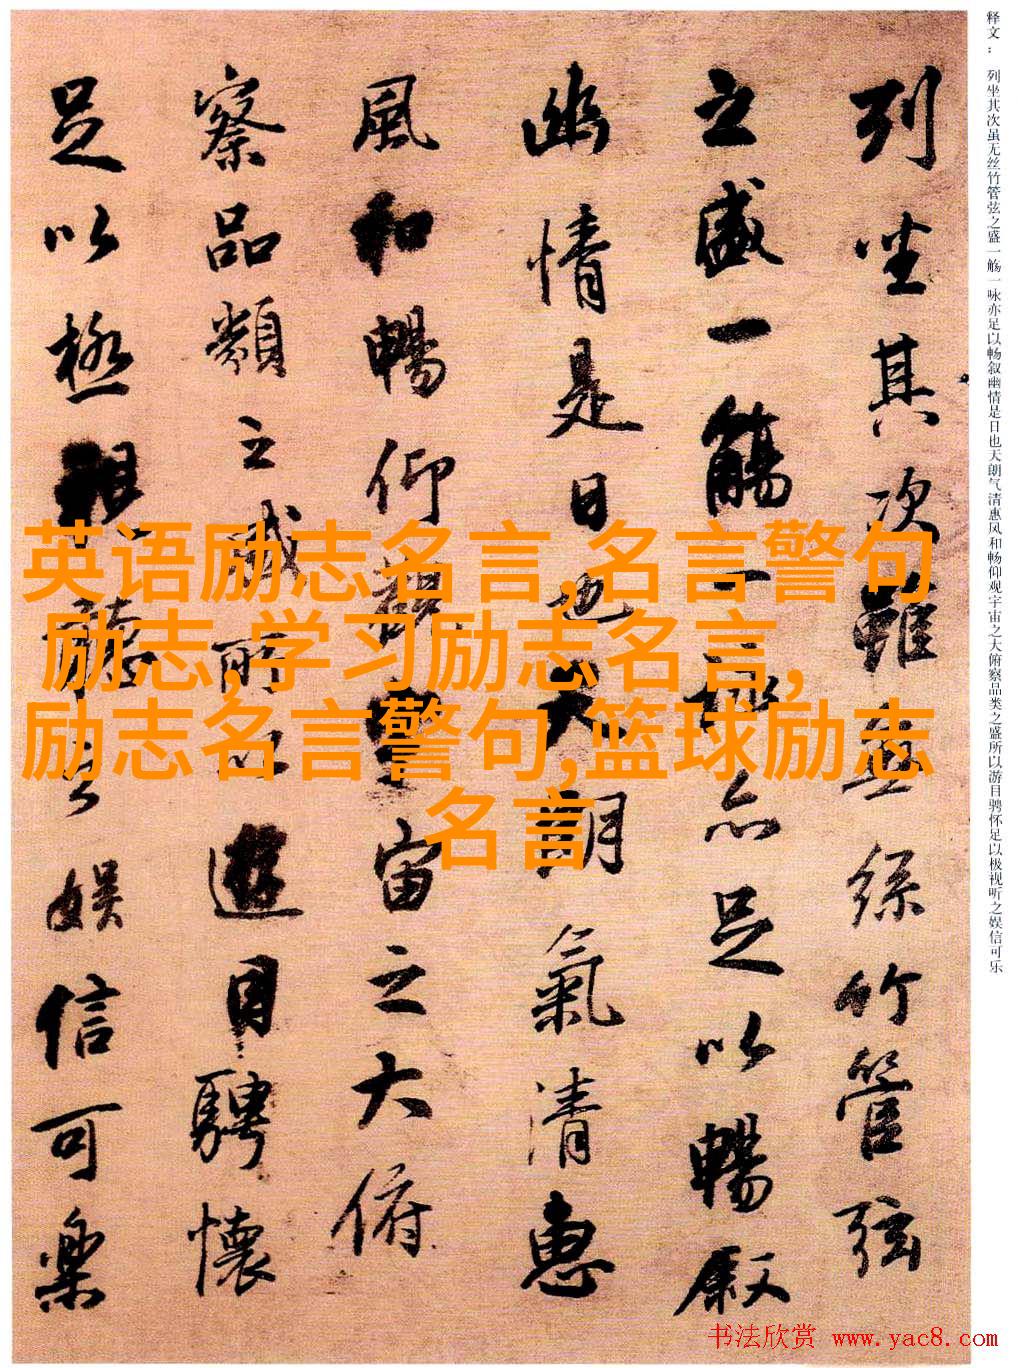 释文： 列坐其次虽无丝竹管弦之盛一觞一咏亦足以畅叙幽情是日也天朗气清惠风和畅仰观宇宙之大俯察品类之盛所以游目骋怀足以极视听之娱信可乐
列坐其次雖無絲竹管弦
之盛一觴一詠亦足以暢叙
幽情是日也天朗氣清惠
風和暢仰觀宇宙之大俯
察品類之盛所以遊目騁懷
足以極視聽之娱信可樂
英语励志名言,名言警句
励志,学习励志名言,
励志名言警句,篮球励志
名言
书法欣赏 www.yac8.com